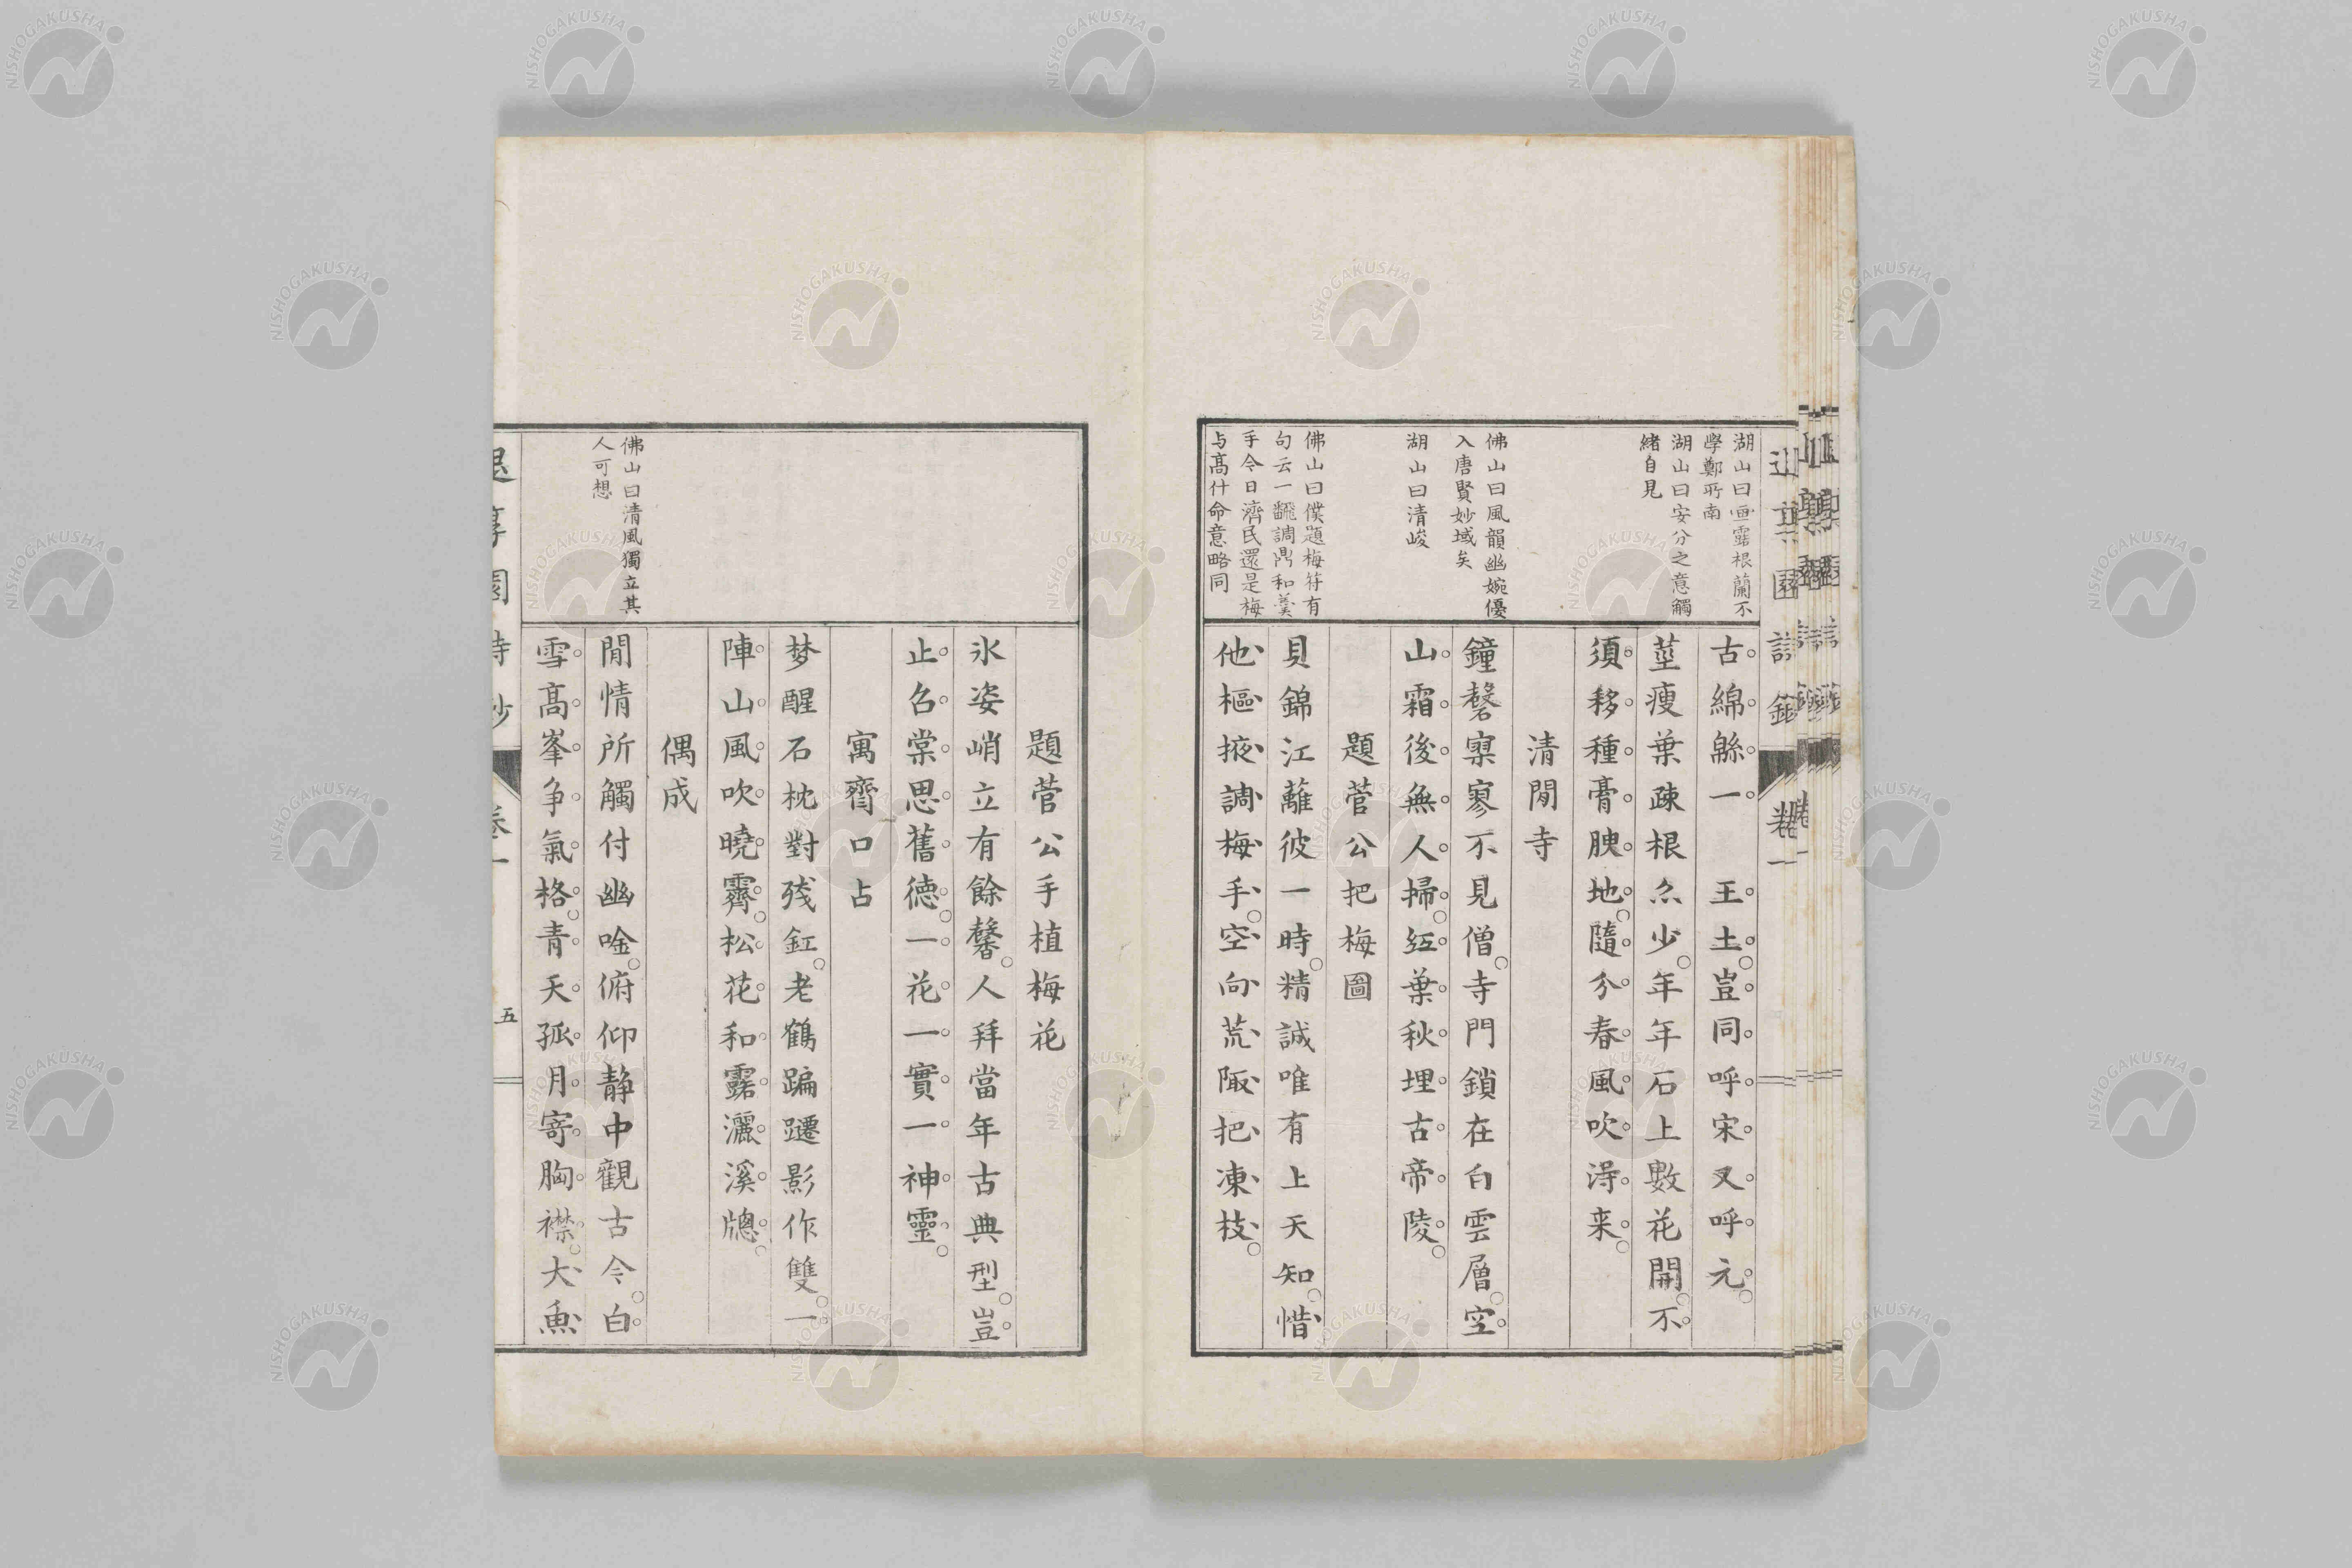 湖山曰畫露根蘭不
學鄭所南
湖山曰安分之意觸
緒自見
佛山曰風韻幽婉優
入唐賢妙域矣
湖山曰清峻
佛山曰僕題梅符有
句云一飜調鼎和羹
手今日濟民還是梅
与髙什命意略同
古綿緜一　王土豈同呼宋又呼元
莖瘦葉疎根亦少年年石上數花開不
須移種膏腴地隨分春風吹得来
清閒寺
鐘磬寥寥不見僧寺門鎖在白雲層空
山霜後無人掃紅葉秋埋古帝陵
題菅公把梅圖
貝錦江蘺彼一時精誠唯有上天知惜
他樞掖調梅手空向荒陬把凍枝
題菅公手植梅花
氷姿峭立有餘馨人拜當年古典型豈
止召棠思舊徳一花一實一神靈
寓齋口占
梦醒石枕對残釭老鶴蹁躚影作雙一
陣山風吹曉霽松花和露灑溪牎
偶成
佛山曰清風獨立其
人可想
閒情所觸付幽唫俯仰静中觀古今白
雪髙峯争氣格青天孤月寄胸襟大魚
退享園詩鈔
卷一
五
NISHOGAKUSHA